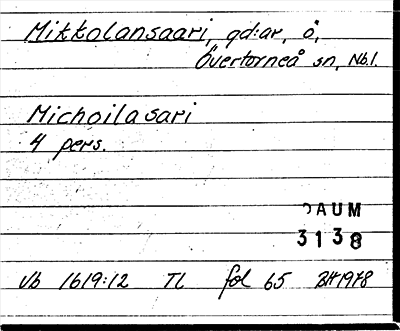 Mikkolansaari, gd:ar, ö,
Övertorneå sn, Nb.l.
Michoilasari
4 pers.
DAUM
3138
Vb 1619:12 TL fol 65 BH 1978